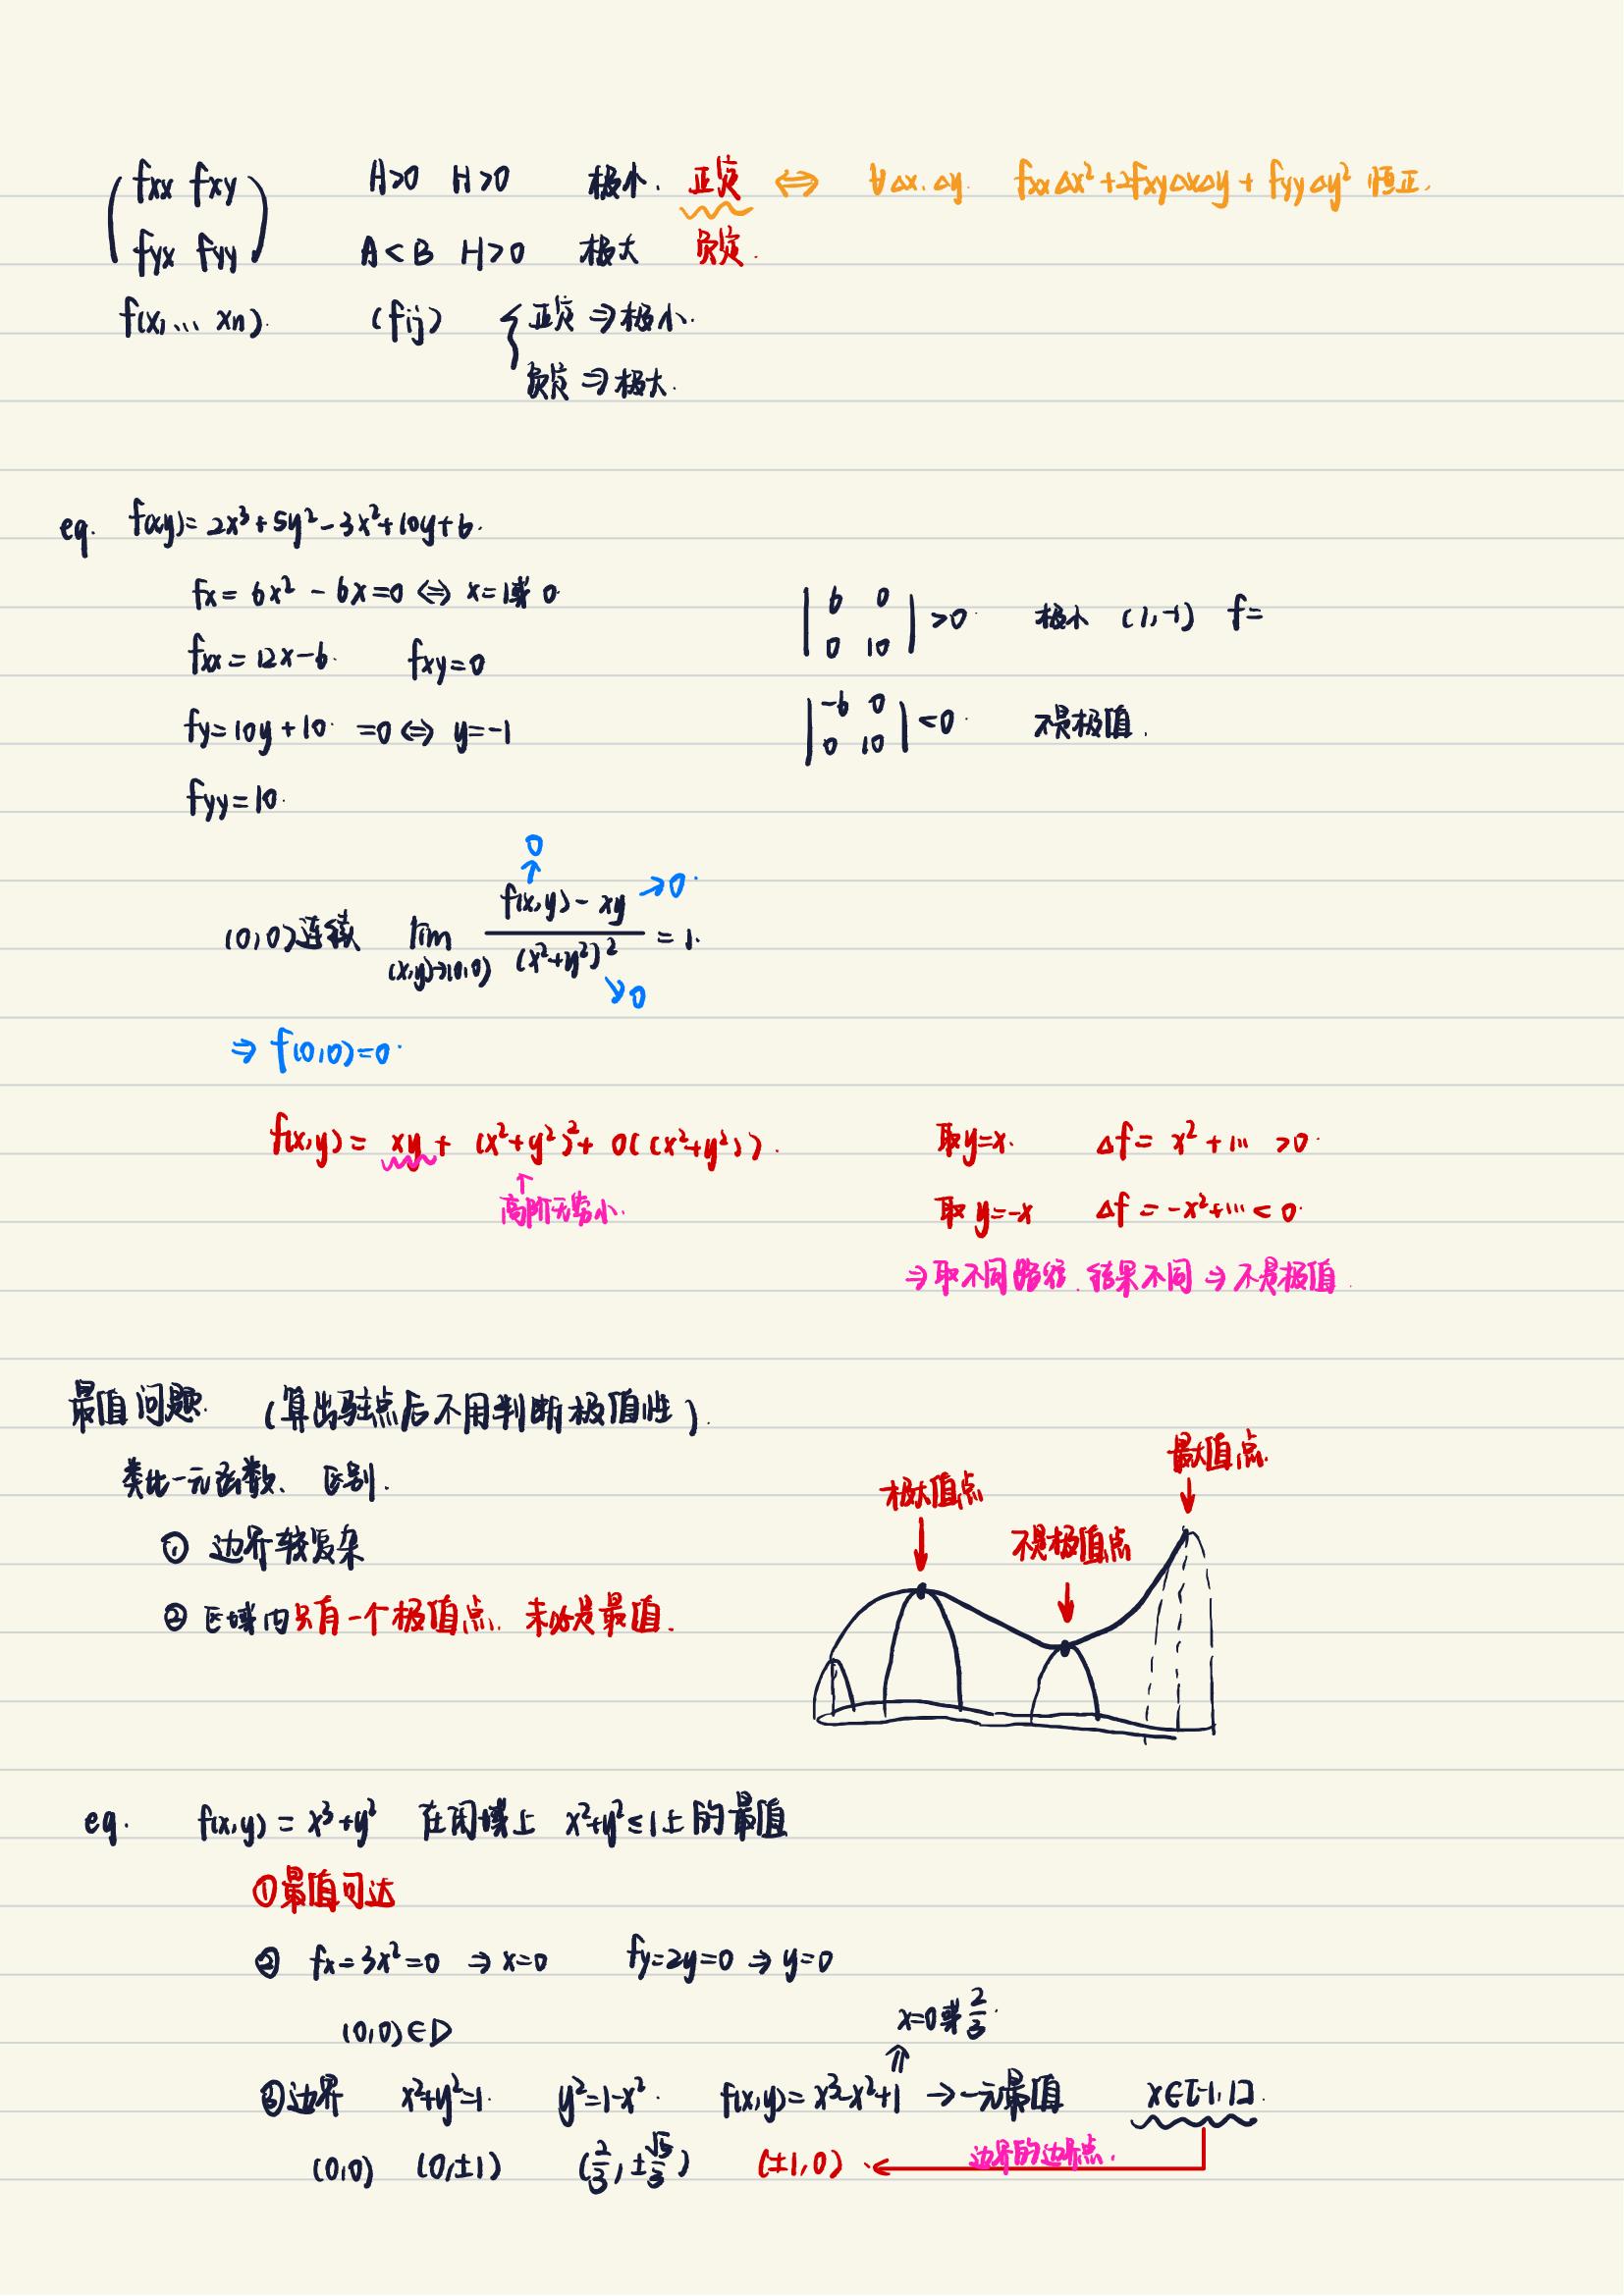 (fxx fxy  A>0 H>0 极小. 正定 ⇔ ∀Δx.Δy. fxxΔx²+2fxyΔxΔy+fyyΔy² 恒正.
fyx fyy) A<B H>0 极大 负定.
f(x,… xn). (fij) { 正定 ⇒ 极小.
负定 ⇒ 极大.
eg. f(xy)=2x³+5y²-3x²+10y+6.
fx=6x²-6x=0 ⇔ x=1或0
|6 0
0 10| >0. 极小 (1,-1) f=
fxx=12x-6. fxy=0
fy=10y+10 =0 ⇔ y=-1
|-6 0
0 10| <0. 不是极值.
fyy=10.
0
↑
(0,0)连续 lim (x,y)→(0,0) (f(x,y)-xy)/(x²+y²)² = 1.
→0.
↘0
⇒ f(0,0)=0.
f(x,y)= xy + (x²+y²)²+ o((x²+y²)). 取y=x. Δf= x²+… >0.
↑
高阶无穷小. 取y=-x Δf=-x²+…<0.
⇒取不同路径. 结果不同 ⇒ 不是极值.
最值问题. (算出驻点后不用判断极值性).
类比一元函数. 区别.
① 边界较复杂
② 区域内只有一个极值点. 未必是最值.
最大值点.
极大值点
不是极值点
eg. f(x,y)=x³+y² 在闭域上 x²+y²≤1上的最值
①最值可达
② fx=3x²=0 ⇒ x=0 fy=2y=0 ⇒ y=0
(0,0)∈D
x=0或2/3.
⇑
③边界 x²+y²=1. y²=1-x². f(x,y)=x³-x²+1 → 一元最值 x∈[-1,1].
(0,0) (0,±1) (2/3,±√5/3) (±1,0). ← 边界的边界点.